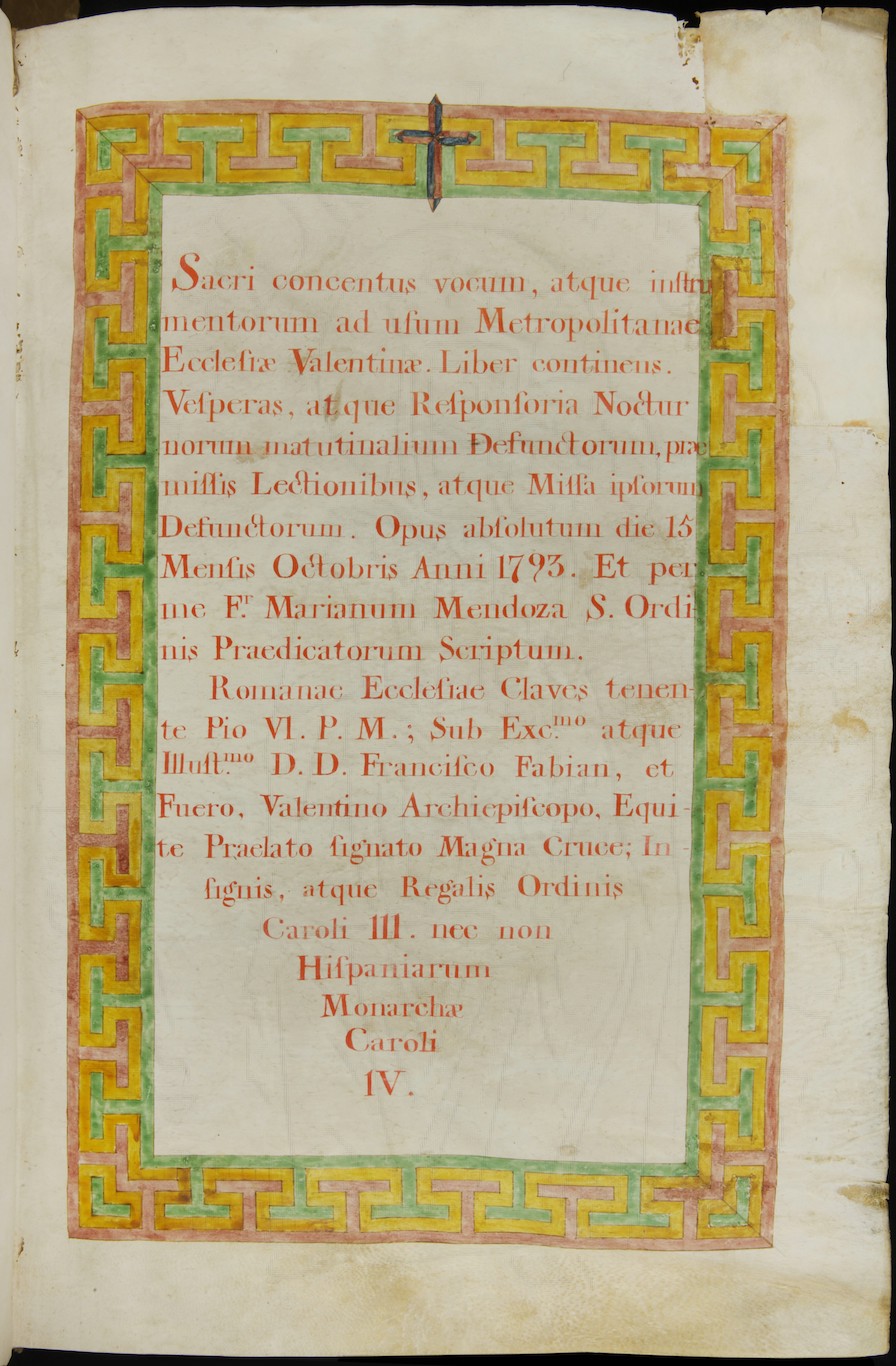 Sacri concentus vocum, atque inſtru
mentorum ad uſum Metropolitanae
Eccleſiæ Valentinæ. Liber continens.
Veſperas, atque Reſponſoria Noctur
norum matutinalium Defunctorum, præ
miſſis Lectionibus, atque Miſſa ipſorum
Defunctorum. Opus abſolutum die 15
Menſis Octobris Anni 1793. Et per
me F.r Marianum Mendoza S. Ordi
nis Praedicatorum Scriptum.
Romanae Eccleſiae Claves tenen-
te Pio VI. P. M.; Sub Exc.mo atque
Illuſt.mo D. D. Franciſco Fabian, et
Fuero, Valentino Archiepiſcopo, Equi-
te Praelato ſignato Magna Cruce; In-
ſignis, atque Regalis Ordinis
Caroli III. nec non
Hiſpaniarum
Monarchæ
Caroli
IV.